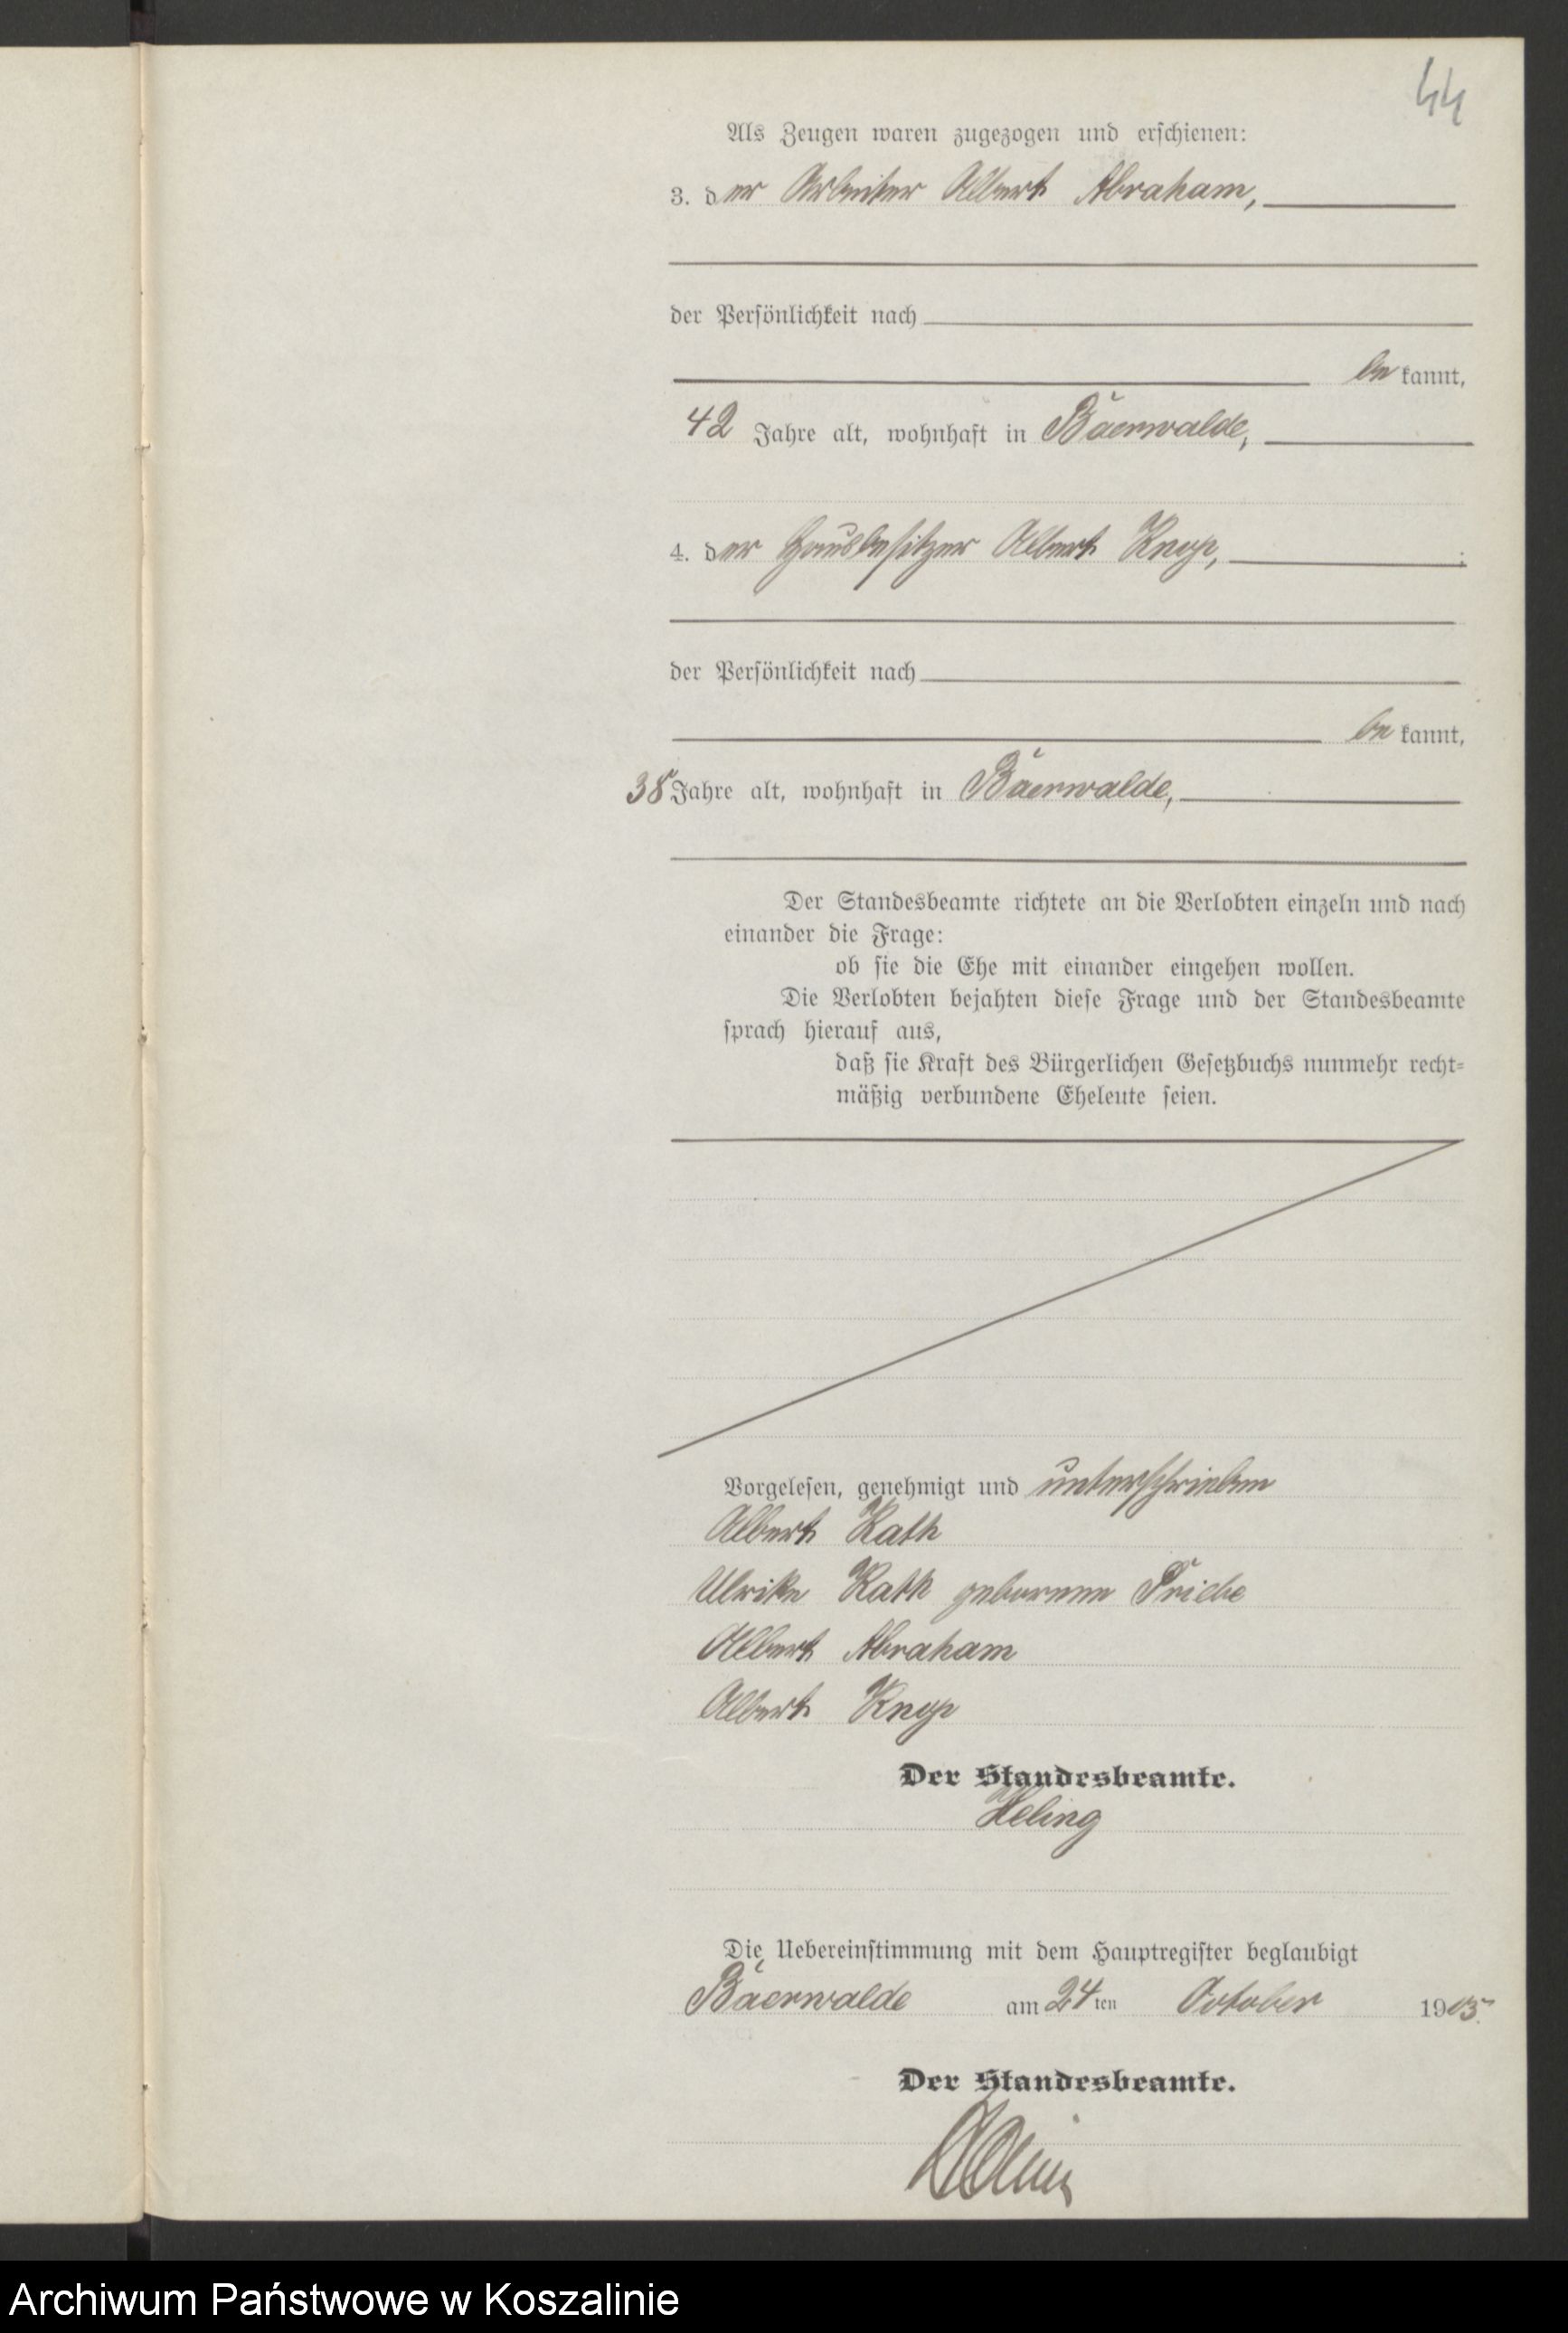 44
Als Zeugen waren zugezogen und erschienen:
3. der Arbeiter Albert Abraham,
der Persönlichkeit nach
bekannt,
42 Jahre alt, wohnhaft in Baerwalde,
4. der Hausbesitzer Albert Knop,
der Persönlichkeit nach
bekannt,
38 Jahre alt, wohnhaft in Baerwalde,
Der Standesbeamte richtete an die Verlobten einzeln und nach
einander die Frage:
ob sie die Ehe mit einander eingehen wollen.
Die Verlobten bejahten diese Frage und der Standesbeamte
sprach hierauf aus,
daß sie Kraft des Bürgerlichen Gesetzbuchs nunmehr recht-
mäßig verbundene Eheleute seien.
Vorgelesen, genehmigt und unterschrieben
Albert Kath
Ulrike Kath geborene Priebe
Albert Abraham
Albert Knop
Der Standesbeamte.
Heling
Die Uebereinstimmung mit dem Hauptregister beglaubigt
Baerwalde am 24ten October 1905.
Der Standesbeamte.
Archiwum Państwowe w Koszalinie